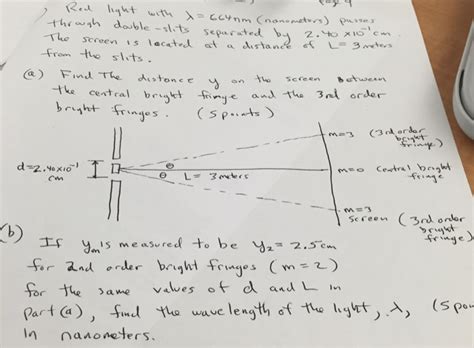 Red light with λ = 664nm (nanometers) passes
through double-slits separated by 2.40 x10⁻¹ cm.
The screen is located at a distance of L= 3 meters
from the slits.
(a) Find The distance y on the screen Between
the central bright fringe and the 3rd order
bright fringes. (5 points)
m=3 (3rd order
bright
fringe)
d=2.40x10⁻¹
cm
θ
θ L= 3 meters
m=0 Central bright
fringe
m=3
Screen (3rd order
bright
fringe)
(b) If yₘ is measured to be y₂ = 2.5cm
for 2nd order bright fringes (m=2)
for the same values of d and L in
part (a), find the wavelength of the light, λ, (5 poin
In nanometers.